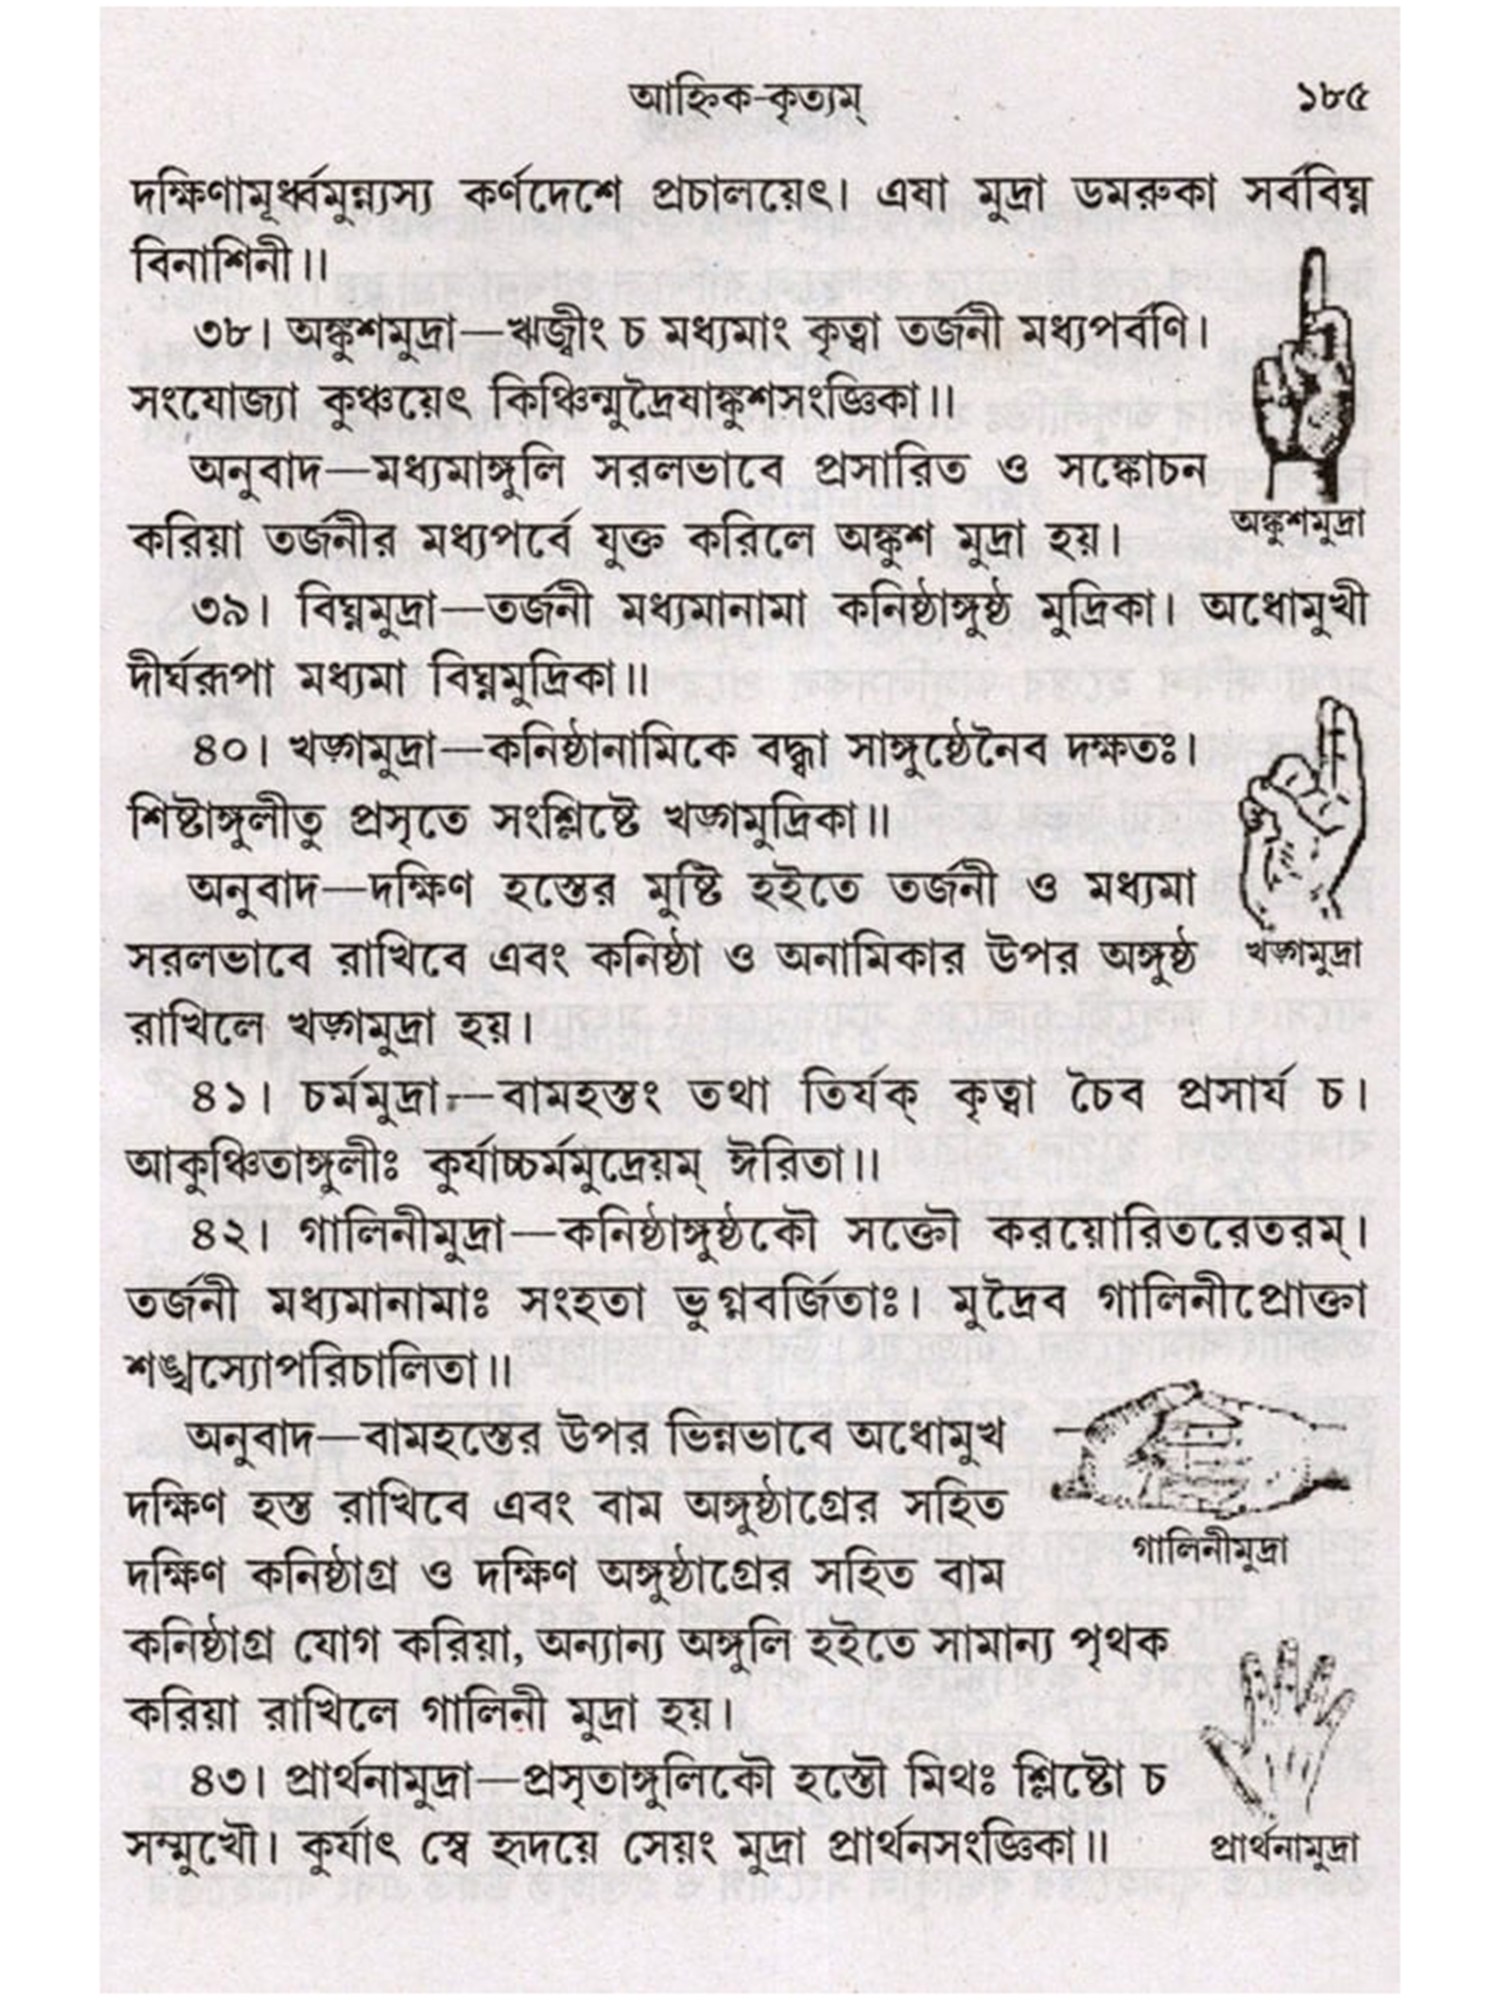 আহ্নিক-কৃত্যম্ ১৮৫
দক্ষিণামূর্ধ্বমুন্ন্যস্য কর্ণদেশে প্রচালয়েৎ। এষা মুদ্রা ডমরুকা সর্ববিঘ্ন
বিনাশিনী।।
৩৮। অঙ্কুশমুদ্রা—ঋজ্বীং চ মধ্যমাং কৃত্বা তর্জনী মধ্যপর্বণি।
সংযোজ্যা কুঞ্চয়েৎ কিঞ্চিন্মুদ্রৈষাঙ্কুশসংজ্ঞিকা।।
অনুবাদ—মধ্যমাঙ্গুলি সরলভাবে প্রসারিত ও সঙ্কোচন
করিয়া তর্জনীর মধ্যপর্বে যুক্ত করিলে অঙ্কুশ মুদ্রা হয়।
অঙ্কুশমুদ্রা
৩৯। বিঘ্নমুদ্রা—তর্জনী মধ্যমানামা কনিষ্ঠাঙ্গুষ্ঠ মুদ্রিকা। অধোমুখী
দীর্ঘরূপা মধ্যমা বিঘ্নমুদ্রিকা॥
৪০। খড়্গমুদ্রা—কনিষ্ঠানামিকে বদ্ধ্বা সাঙ্গুষ্ঠেনৈব দক্ষতঃ।
শিষ্টাঙ্গুলীতু প্রসৃতে সংশ্লিষ্টে খড়্গমুদ্রিকা॥
অনুবাদ—দক্ষিণ হস্তের মুষ্টি হইতে তর্জনী ও মধ্যমা
সরলভাবে রাখিবে এবং কনিষ্ঠা ও অনামিকার উপর অঙ্গুষ্ঠ
খড়্গমুদ্রা
রাখিলে খড়্গমুদ্রা হয়।
৪১। চর্মমুদ্রা—বামহস্তং তথা তির্যক্ কৃত্বা চৈব প্রসার্য চ।
আকুঞ্চিতাঙ্গুলীঃ কুর্যাচ্চর্মমুদ্রেয়ম্ ঈরিতা॥
৪২। গালিনীমুদ্রা—কনিষ্ঠাঙ্গুষ্ঠকৌ সক্তৌ করয়োরিতরেতরম্।
তর্জনী মধ্যমানামাঃ সংহতা ভুগ্নবর্জিতাঃ। মুদ্রৈব গালিনীপ্রোক্তা
শঙ্খস্যোপরিচালিতা॥
অনুবাদ—বামহস্তের উপর ভিন্নভাবে অধোমুখ
দক্ষিণ হস্ত রাখিবে এবং বাম অঙ্গুষ্ঠাগ্রের সহিত
দক্ষিণ কনিষ্ঠাগ্র ও দক্ষিণ অঙ্গুষ্ঠাগ্রের সহিত বাম
গালিনীমুদ্রা
কনিষ্ঠাগ্র যোগ করিয়া, অন্যান্য অঙ্গুলি হইতে সামান্য পৃথক
করিয়া রাখিলে গালিনী মুদ্রা হয়।
৪৩। প্রার্থনামুদ্রা—প্রসৃতাঙ্গুলিকৌ হস্তৌ মিথঃ শ্লিষ্টৌ চ
সম্মুখৌ। কুর্যাৎ স্বে হৃদয়ে সেয়ং মুদ্রা প্রার্থনসংজ্ঞিকা॥
প্রার্থনামুদ্রা